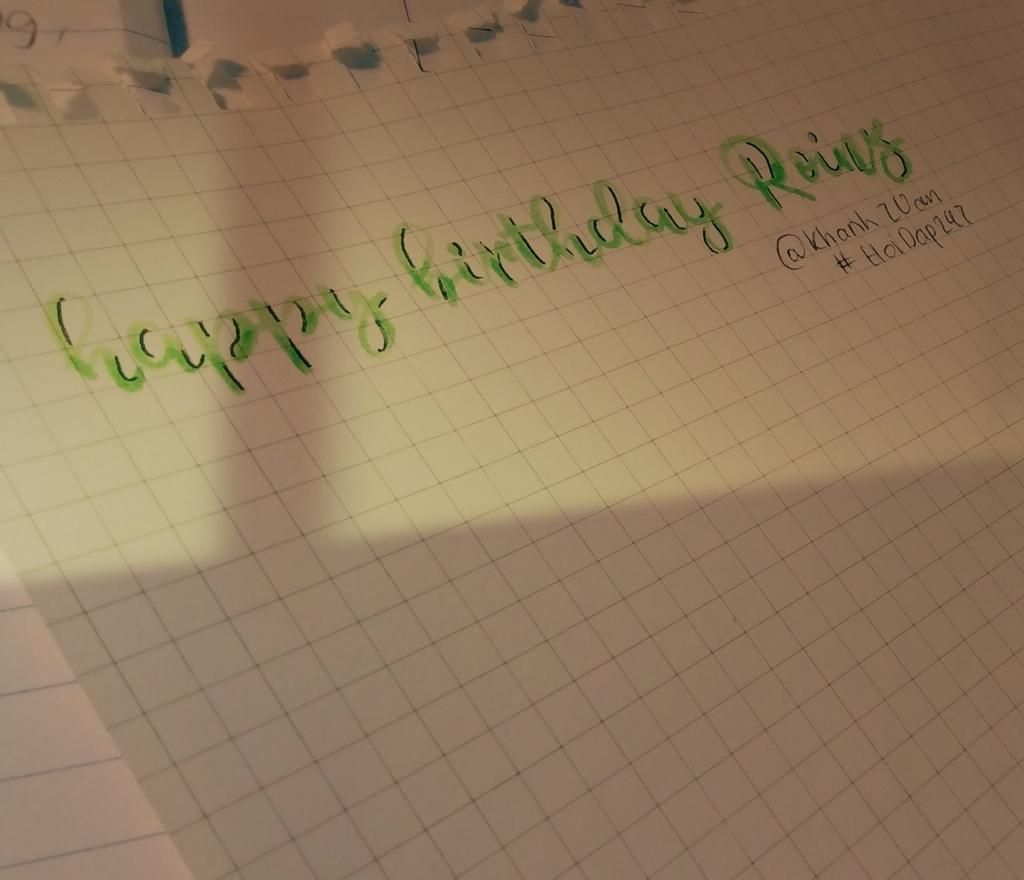 happy birthday Roins
@khanh20an
# HoiDap247